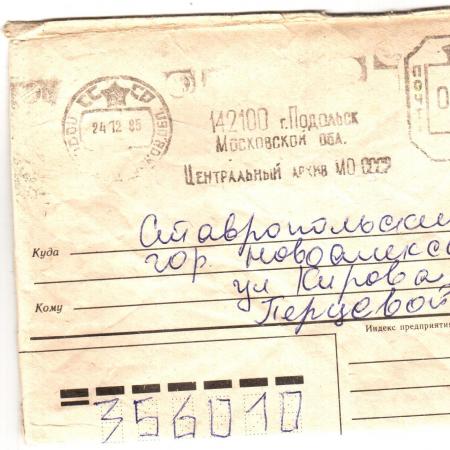 СССР
24 12 85
142100 г. Подольск
Московской обл.
Центральный архив МО СССР
ПОЧТ
0
Куда
Ставропольский
гор. Новоалекса
ул Кирова
Кому
Перцевой
Индекс предприятия
356010